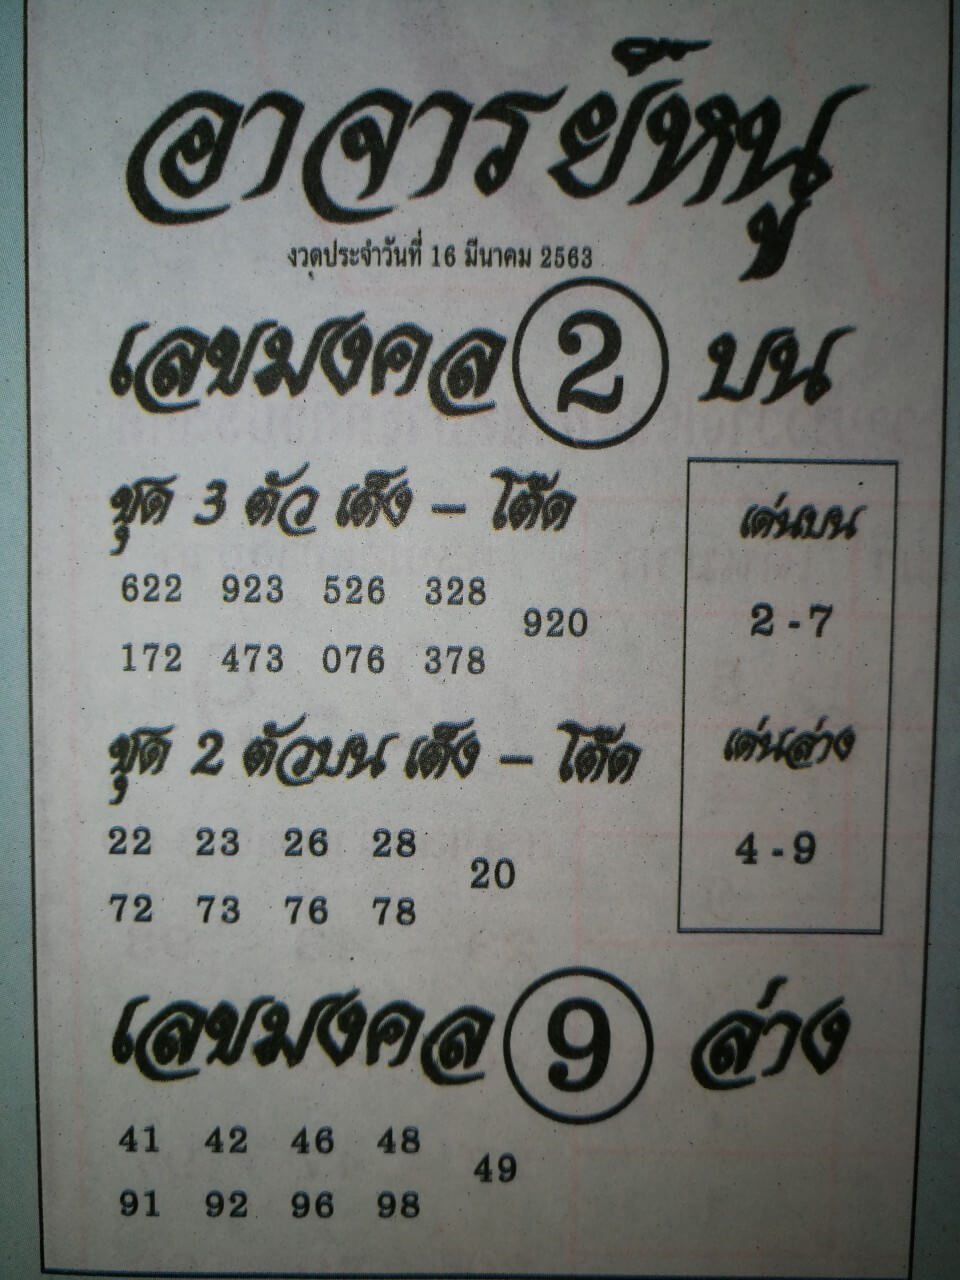 อาจารย์หนู
งวดประจำวันที่ 16 มีนาคม 2563
เลขมงคล 2 บน
ชุด 3 ตัว เต็ง – โต๊ด
622 923 526 328
920
172 473 076 378
ชุด 2 ตัวบน เต็ง – โต๊ด
22 23 26 28
20
72 73 76 78
เด่นบน
2 - 7
เด่นล่าง
4 - 9
เลขมงคล 9 ล่าง
41 42 46 48
49
91 92 96 98